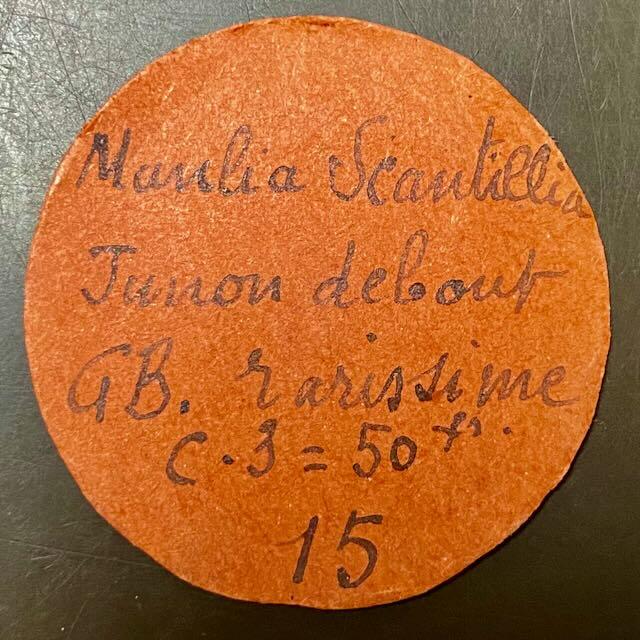 Manlia Scantillia
Junon debout
GB. rarissime
C. 3 = 50 frs.
15